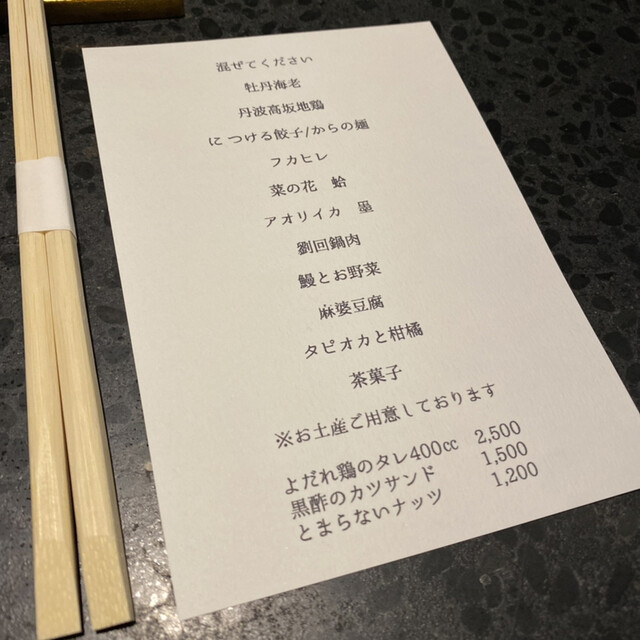 混ぜてください
牡丹海老
丹波高坂地鶏
に つける餃子/からの麺
フカヒレ
菜の花 蛤
アオリイカ 墨
劉回鍋肉
鰻とお野菜
麻婆豆腐
タピオカと柑橘
茶菓子
※お土産ご用意しております
よだれ鶏のタレ400cc 2,500
黒酢のカツサンド 1,500
とまらないナッツ 1,200